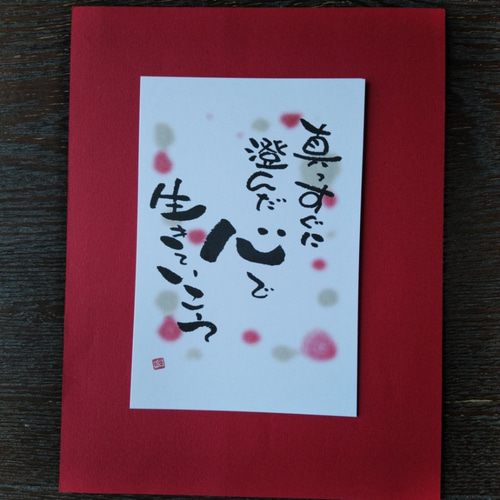 真っすぐに
澄んだ心で
生きていこう